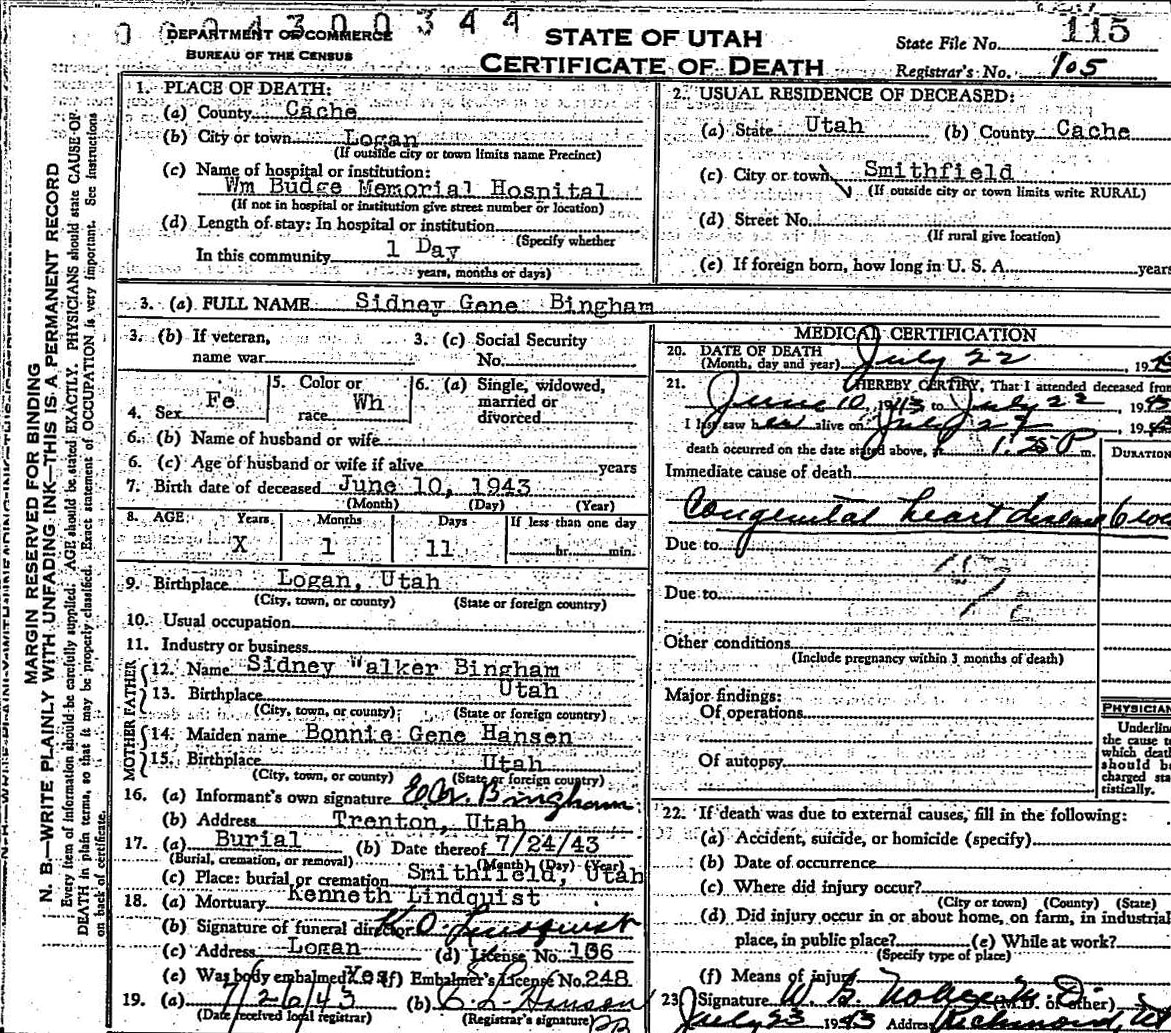 0 6 0 4 3 0 0 3 4 4
DEPARTMENT OF COMMERCE
BUREAU OF THE CENSUS
STATE OF UTAH
CERTIFICATE OF DEATH
State File No. 115
Registrar's No. 105
MARGIN RESERVED FOR BINDING
N. B.—WRITE PLAINLY WITH UNFADING INK—THIS IS A PERMANENT RECORD
Every item of information should be carefully supplied. AGE should be stated EXACTLY. PHYSICIANS should state CAUSE OF
DEATH in plain terms, so that it may be properly classified. Exact statement of OCCUPATION is very important. See instructions
on back of certificate.
1. PLACE OF DEATH:
(a) County Cache
(b) City or town Logan
(If outside city or town limits name Precinct)
(c) Name of hospital or institution:
Wm Budge Memorial Hospital
(If not in hospital or institution give street number or location)
(d) Length of stay: In hospital or institution
(Specify whether
In this community 1 Day
years, months or days)
2. USUAL RESIDENCE OF DECEASED:
(a) State Utah (b) County Cache
(c) City or town Smithfield
(If outside city or town limits write RURAL)
(d) Street No.
(If rural give location)
(e) If foreign born, how long in U. S. A. years
3. (a) FULL NAME Sidney Gene Bingham
3. (b) If veteran,
name war
3. (c) Social Security
No.
4. Sex Fe
5. Color or
race Wh
6. (a) Single, widowed,
married or
divorced
6. (b) Name of husband or wife
6. (c) Age of husband or wife if alive years
7. Birth date of deceased June 10, 1943
(Month) (Day) (Year)
8. AGE Years Months Days If less than one day
X 1 11 hr. min.
9. Birthplace Logan, Utah
(City, town, or county) (State or foreign country)
10. Usual occupation
11. Industry or business
FATHER
12. Name Sidney Walker Bingham
13. Birthplace Utah
(City, town, or county) (State or foreign country)
MOTHER
14. Maiden name Bonnie Gene Hansen
15. Birthplace Utah
(City, town, or county) (State or foreign country)
16. (a) Informant's own signature Bingham
(b) Address Trenton, Utah
17. (a) Burial (b) Date thereof 7/24/43
(Burial, cremation, or removal) (Month) (Day) (Year)
(c) Place: burial or cremation Smithfield, Utah
18. (a) Mortuary Kenneth Lindquist
(b) Signature of funeral director K. O. Lindquist
(c) Address Logan (d) License No. 166
(e) Was body embalmed Yes (f) Embalmer's License No. 248
19. (a) 7/26/43 (b) Hansen
(Date received local registrar) (Registrar's signature)
MEDICAL CERTIFICATION
20. DATE OF DEATH
(Month, day and year) July 22, 19
21. I HEREBY CERTIFY, That I attended deceased from
June 10, 1943 to July 22, 1943
I last saw her alive on July 22, 1943
death occurred on the date stated above, at 1:25 P m.
DURATION
Immediate cause of death
Congenital heart disease
Due to
Due to
Other conditions
(Include pregnancy within 3 months of death)
Major findings:
Of operations
Of autopsy
PHYSICIAN
Underline
the cause to
which death
should be
charged sta-
tistically.
22. If death was due to external causes, fill in the following:
(a) Accident, suicide, or homicide (specify)
(b) Date of occurrence
(c) Where did injury occur?
(City or town) (County) (State)
(d) Did injury occur in or about home, on farm, in industrial
place, in public place? (e) While at work?
(Specify type of place)
(f) Means of injury
23. Signature (M.D. or other)
July 23 1943 Address Richmond, Ut